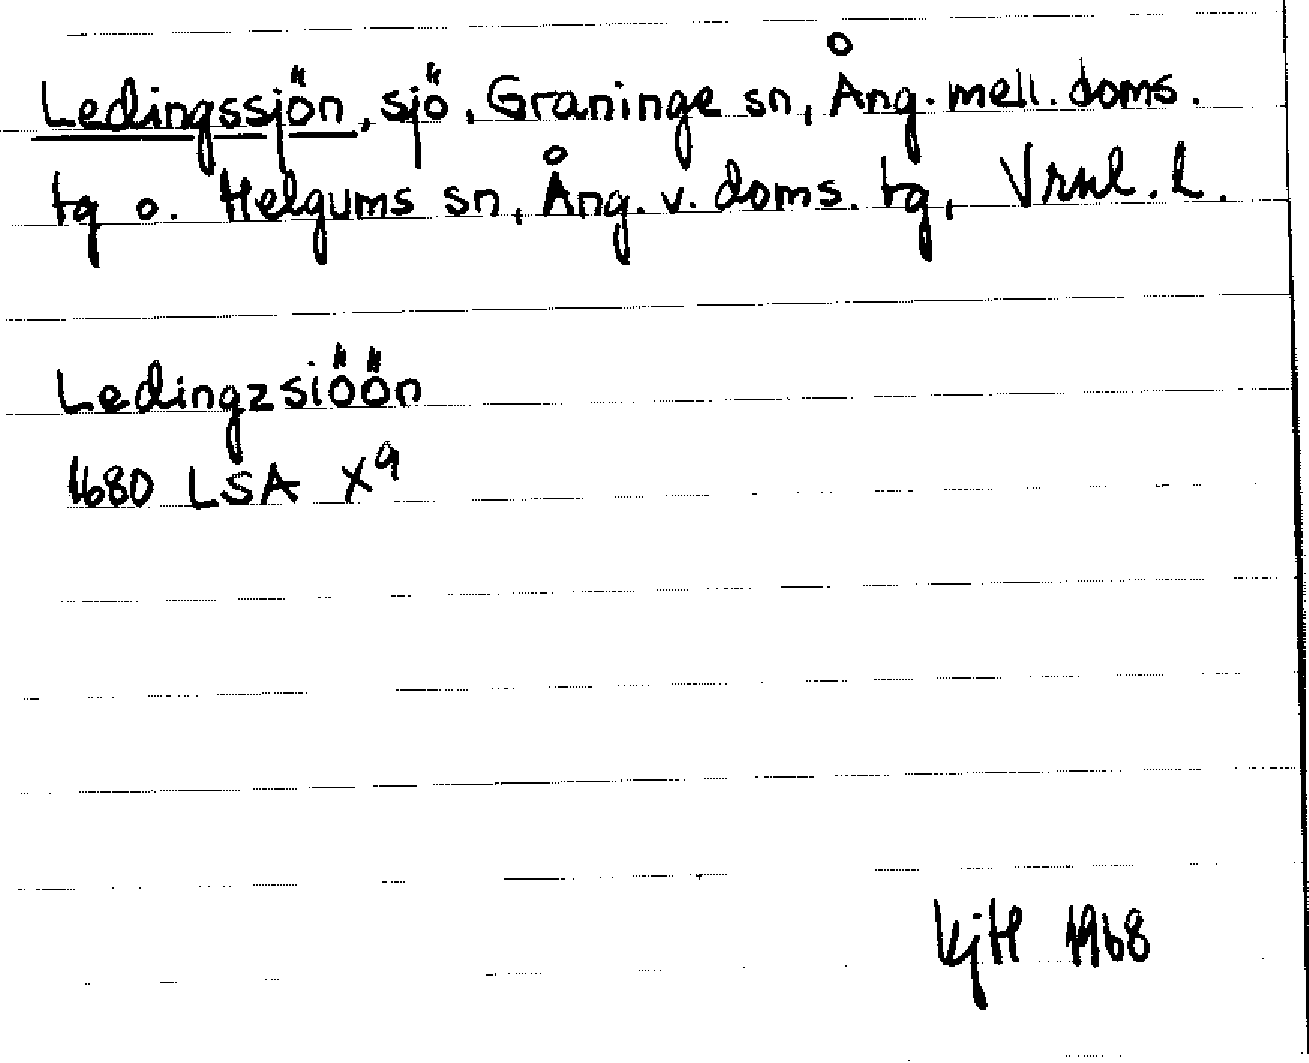 Ledingssjön, sjö, Graninge sn, Ång. mell. doms.
tg o. Helgums sn, Ång. v. doms. tg, Vrnl. L.
Ledingzsiöön
1680 LSA X9
KjH 1968